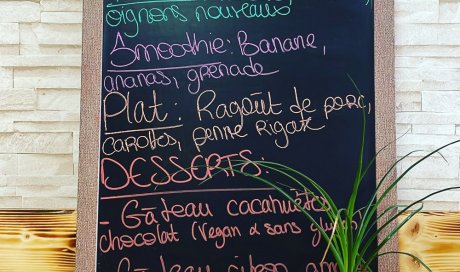 oignons nouveaux
Smoothie: Banane,
ananas, grenade
Plat: Ragoût de porc,
carottes, penne Rigate
DESSERTS:
- Gâteau cacahuètes
chocolat (Vegan & sans gluten)
- Gâteau citron